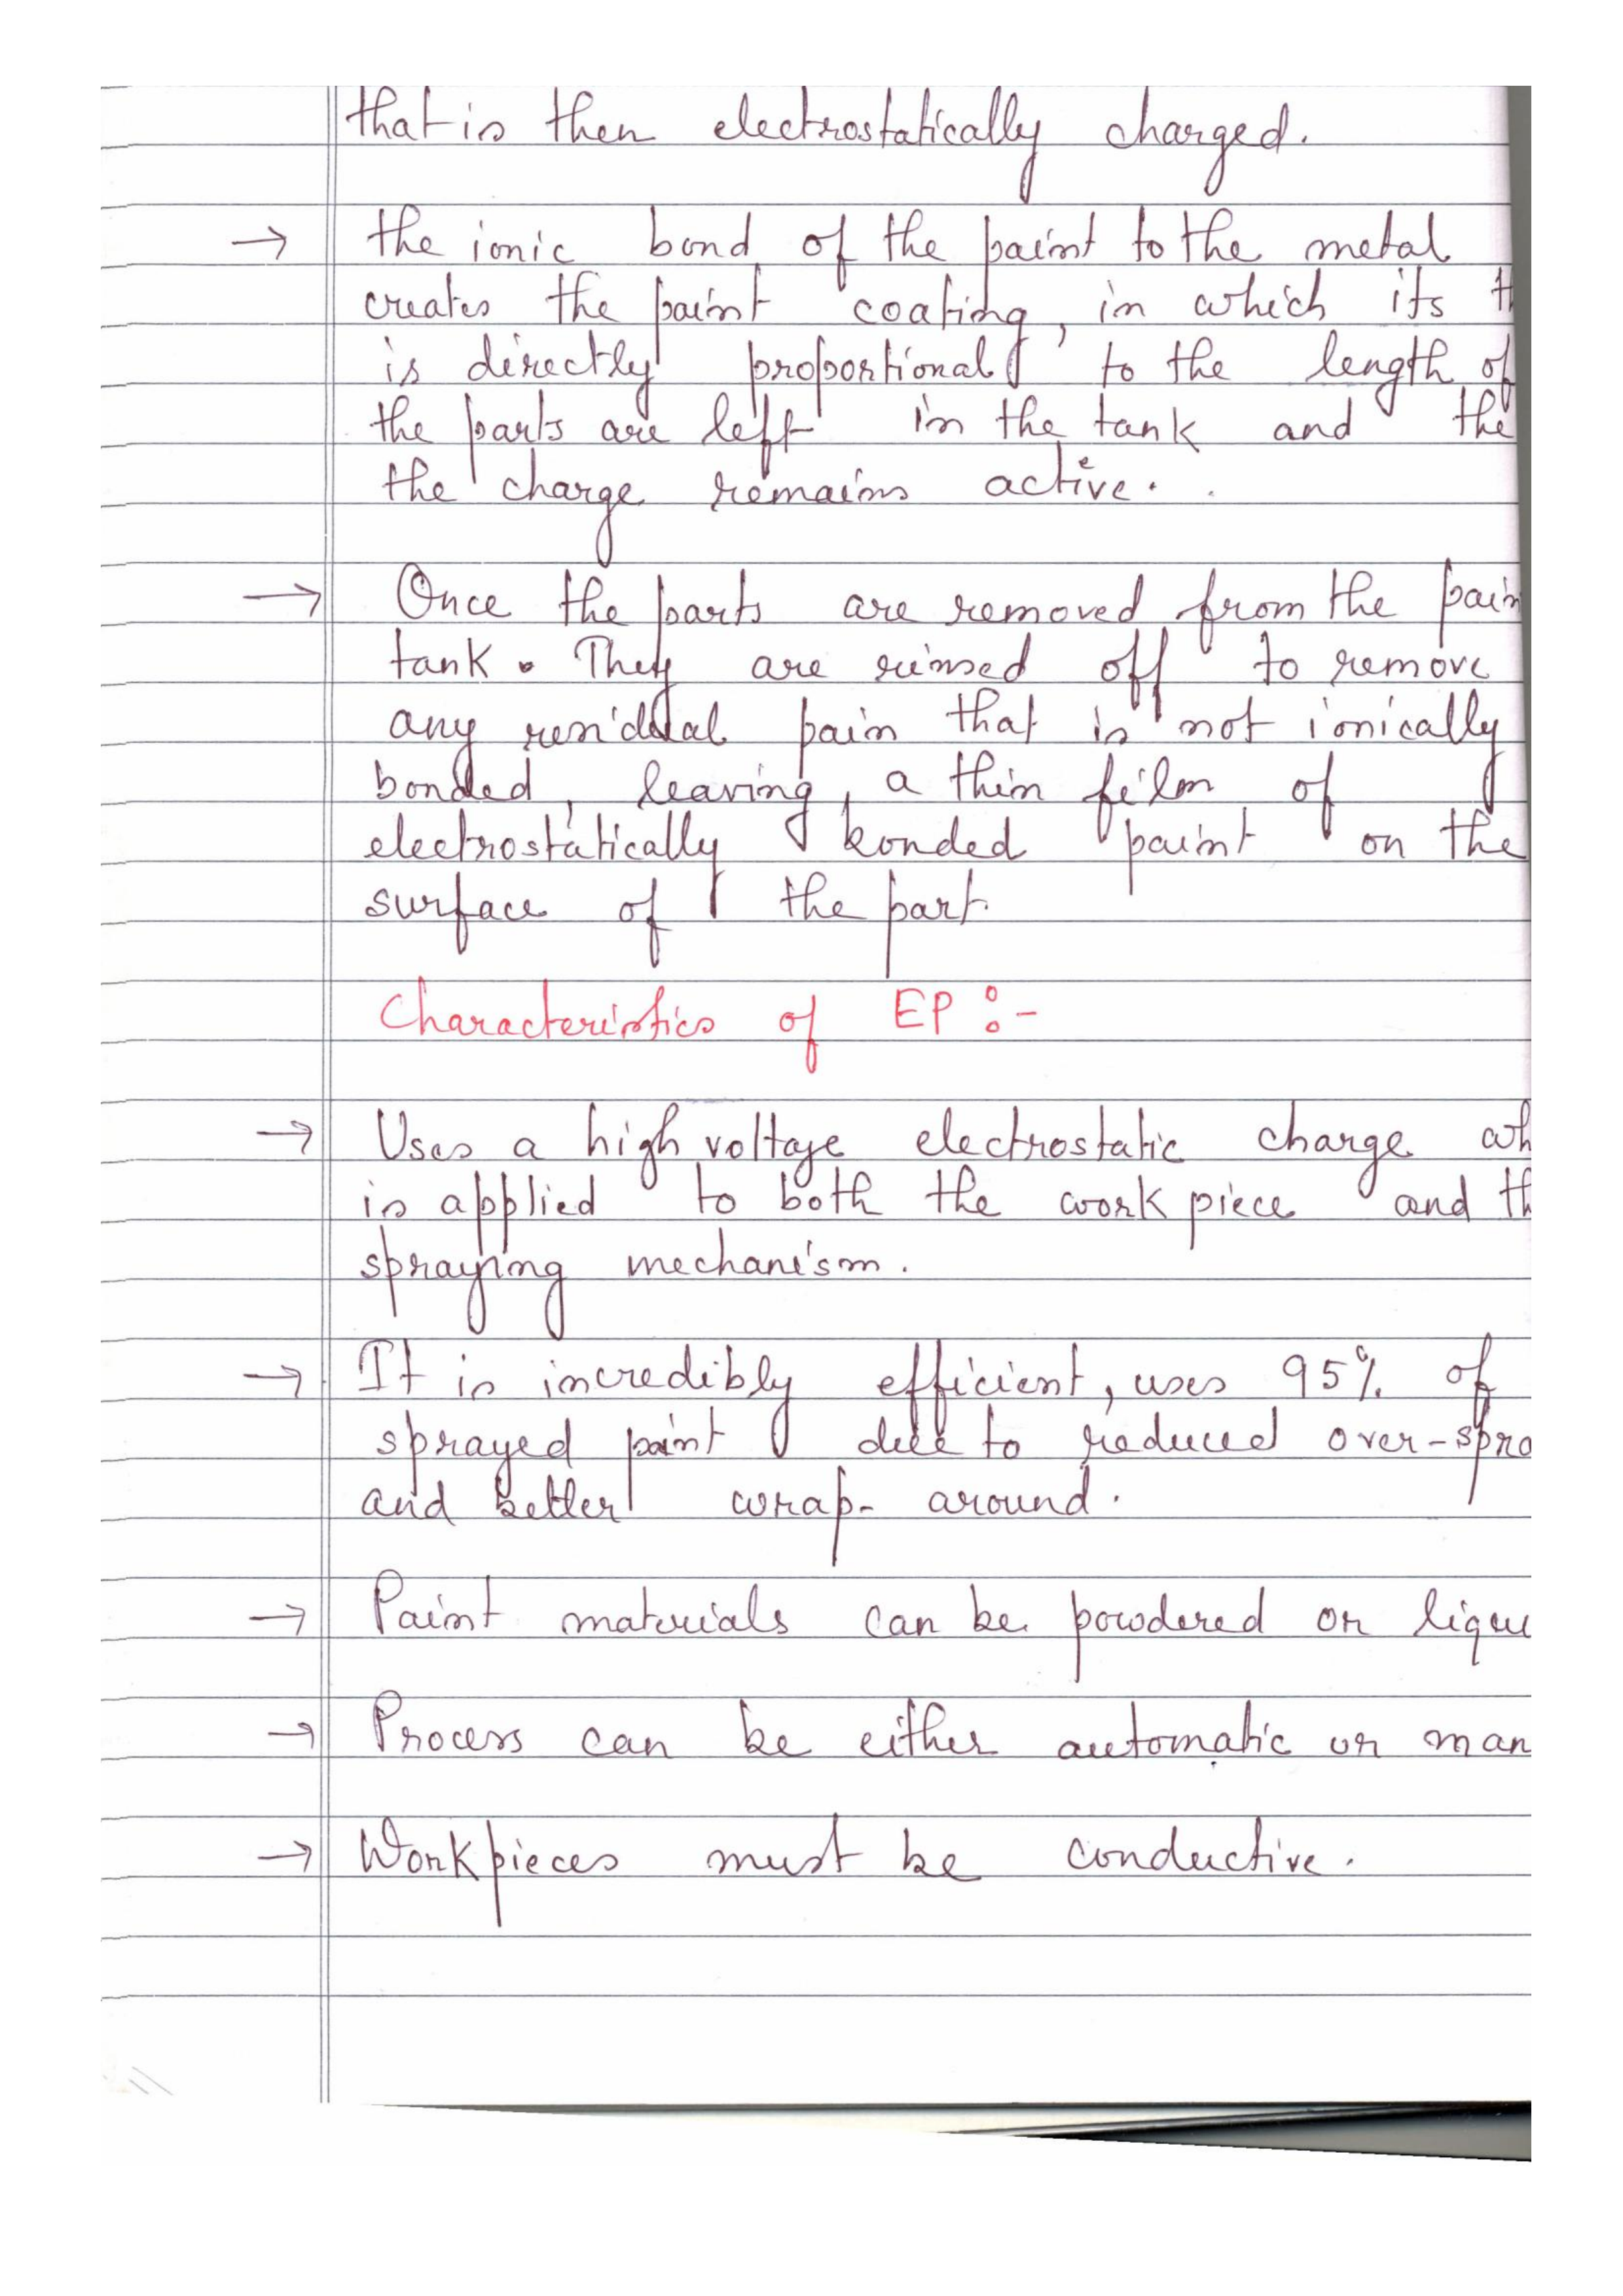 that is then electrostatically charged.
→ the ionic bond of the paint to the metal
creates the paint coating, in which its th
is directly proportional to the length of
the parts are left in the tank and the
the charge remains active.
→ Once the parts are removed from the pain
tank. They are rinsed off to remove
any residual pain that is not ionically
bonded, leaving, a thin film of
electrostatically bonded paint on the
surface of the part.
Characteristics of EP :-
→ Uses a high voltage electrostatic charge wh
is applied to both the work piece and th
spraying mechanism.
→ It is incredibly efficient, uses 95% of
sprayed paint due to reduced over-spra
and better wrap- around.
→ Paint materials can be powdered or liqu
→ Process can be either automatic or man
→ Workpieces must be conductive.